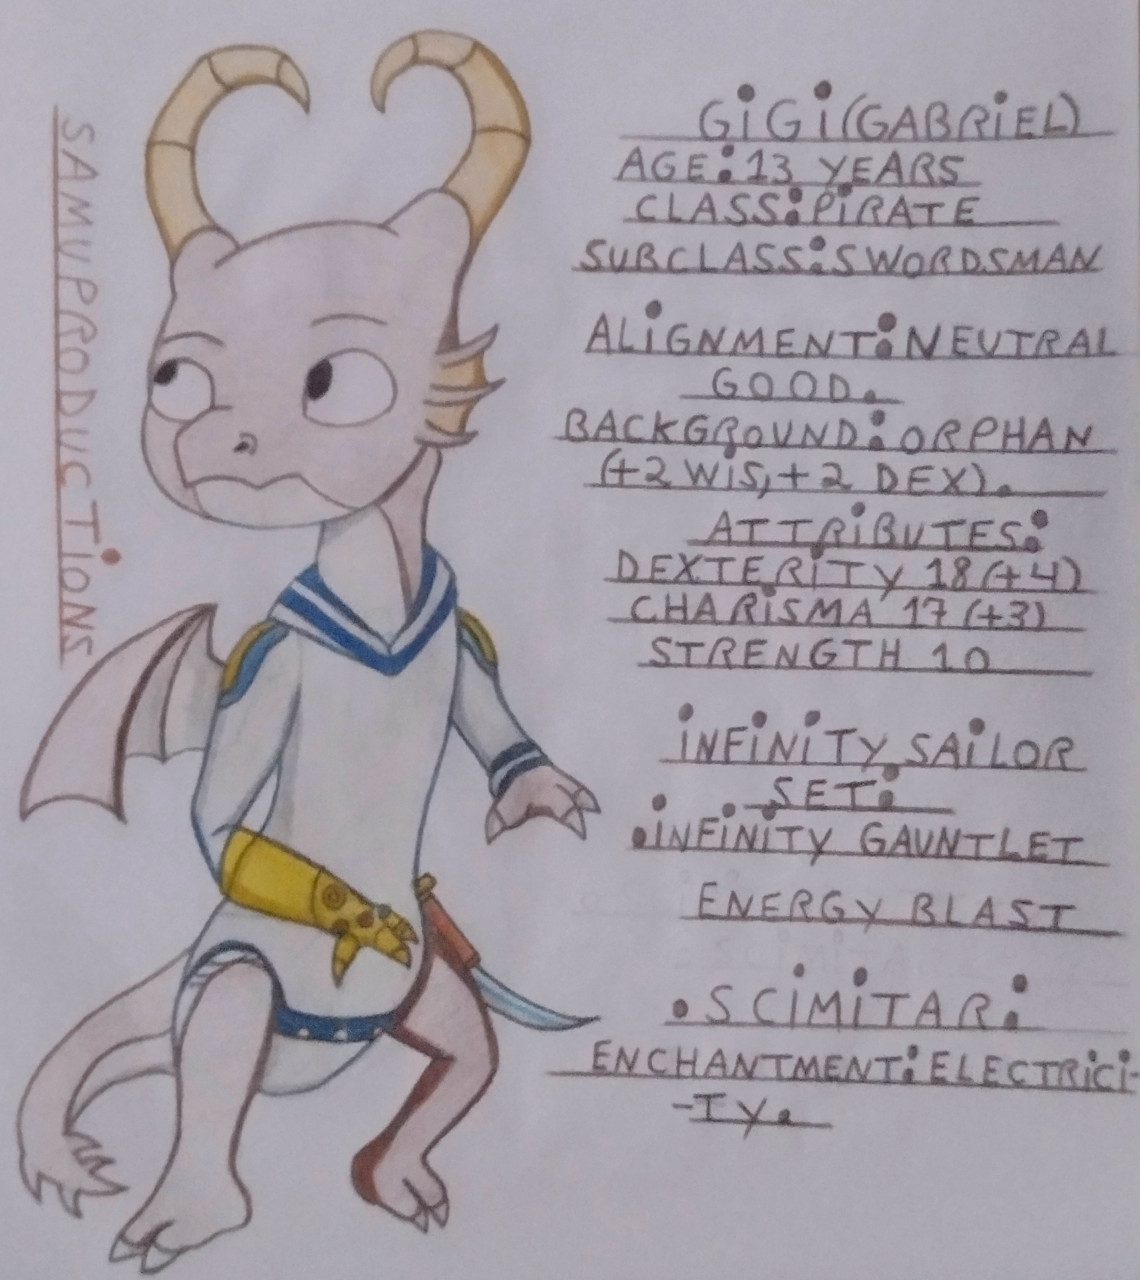 SAMUPRODUCTiONS
GiGi(GABRiEL)
AGE:13 YEARS
CLASS:PiRATE
SUBCLASS:SWORDSMAN
ALiGNMENT:NEUTRAL
GOOD.
BACKGROUND:ORPHAN
(+2 WiS,+2 DEX).
ATTRiBUTES:
DEXTERiTY 18(+4)
CHARiSMA 17(+3)
STRENGTH 10
iNFiNiTY SAiLOR
SET:
•iNFiNiTY GAUNTLET
ENERGY BLAST
•SCiMiTAR:
ENCHANTMENT:ELECTRiCi-
-TY.